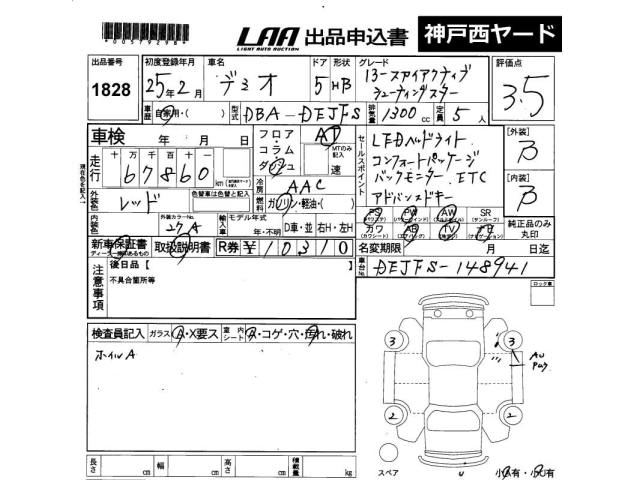 *00579298*
LAA 出品申込書 神戸西ヤード
LIGHT AUTO AUCTION
出品番号 初度登録年月 車名 ドア 形状 グレード 評価点
1828 25年2月 デミオ 5 HB 13-スカイアクティブ シューティングスター 3.5
車歴 自家用・( ) 型式 DBA-DEJFS 排気量 1300cc 定員 5人
車検 年 月 日 フロア・コラム・ダッシュ AT MTのみ記入 速
セールスポイント
LEDヘッドライト
コンフォートパッケージ
バックモニター ETC
アドバンスドキー
[外装] B
[内装] B
現在色を記入
走行 十万 万 千 百 十 一
67860
冷房 AAC
外装色 レッド 色替車は色替と記入 燃料 ガソリン・軽油・( )
PS PW AW SR
(パワステ) (パワーウインド) (アルミ) (サンルーフ)
カワ AB TV ナビ
(カワシート) (エアバッグ) (テレビ) (ナビゲーション)
純正品のみ丸印
内装色 外装カラーNo. 27A 輸入車 モデル年式 年・不明 D車・並 右H・左H
新車保証書 取扱説明書 R券 ¥10310 名変期限 月 日迄
ディーラー印があるもの
車台No. DEJFS-148941
注意事項 後日品【
不具合箇所等
ロック車
検査員記入 ガラス A・X要ス 室内 シート A・コゲ・穴・汚れ・破れ
ホイルA
3 3
2 2
AW
長さ cm 幅 cm 高さ cm 積載量 kg
スペア 小A有・小U有